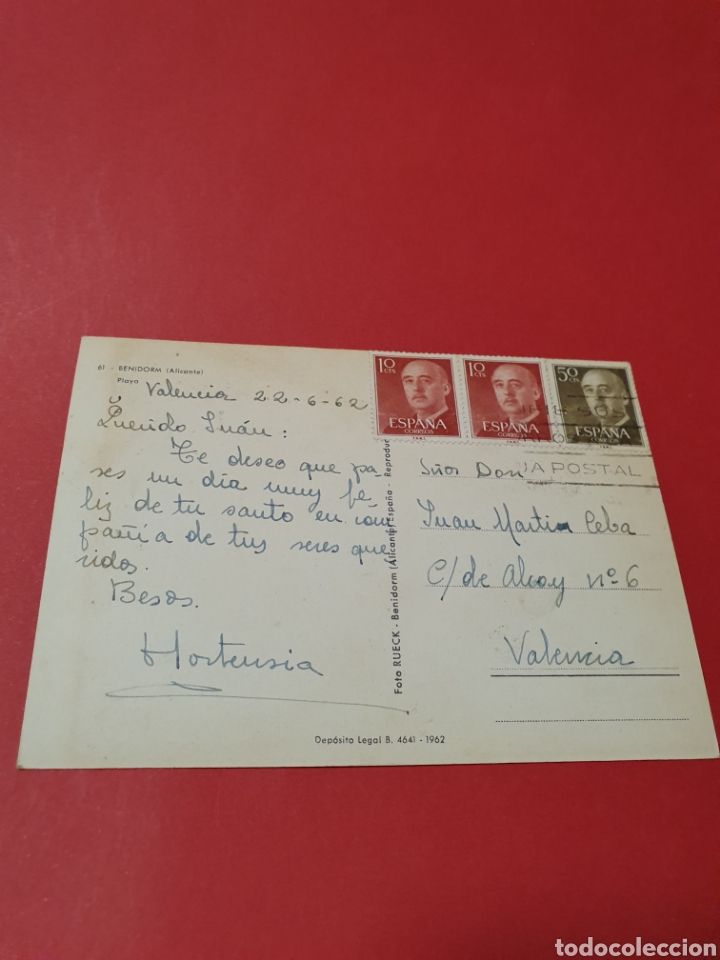 61 - BENIDORM (Alicante)
Playa
Valencia 22-6-62
Querido Juán:
Te deseo que pa-
ses un día muy fe-
liz de tu santo en com
pañía de tus seres que
ridos.
Besos.
Hortensia
Foto RUECK - Benidorm (Alicante) España - Reproduc
Depósito Legal B. 4641 - 1962
10 CTS
ESPAÑA
CORREOS
10 CTS
ESPAÑA
CORREOS
50 CTS
ESPAÑA
A POSTAL
Sñor Don
Juan Martin Ceba
C/ de Alcoy nº 6
Valencia
todocoleccion